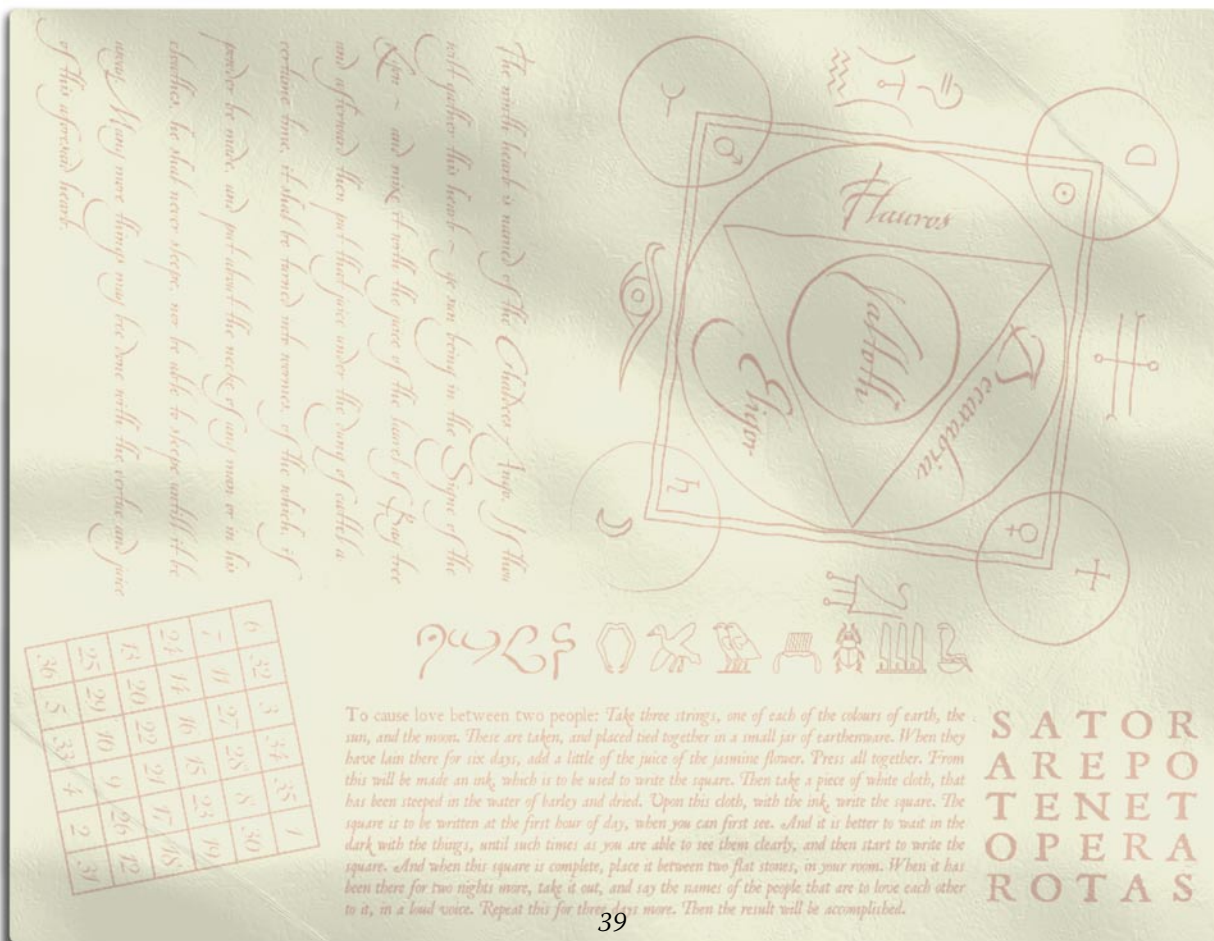 The nineth hearb is named of the Chaldees, Ango. If thou
wilt gather this hearb – ye sun being in the Signe of the
Lyon – and mixe it with the juice of the laurel of Bay tree
and afterward then put that juice under the dung of cattel a
certaine time, it shal be turned into wormes, of the which, if
powder be made, and put about the necke of any man or in his
cloathes, he shal never sleepe, nor be able to sleepe untill it be
away. Many more things may bee done with the vertue and juice
of this aforesaid hearb.
Flauros
Decarabia
Eligor
6 32 3 34 35 1
7 11 27 28 8 30
24 14 16 15 23 19
13 20 22 21 17 18
25 29 10 9 26 12
36 5 33 4 2 31
To cause love between two people: Take three strings, one of each of the colours of earth, the
sun, and the moon. These are taken, and placed tied together in a small jar of earthenware. When they
have lain there for six days, add a little of the juice of the jasmine flower. Press all together. From
this will be made an ink, which is to be used to write the square. Then take a piece of white cloth, that
has been steeped in the water of barley and dried. Upon this cloth, with the ink, write the square. The
square is to be written at the first hour of day, when you can first see. And it is better to wait in the
dark with the things, until such times as you are able to see them clearly, and then start to write the
square. And when this square is complete, place it between two flat stones, in your room. When it has
been there for two nights more, take it out, and say the names of the people that are to love each other
to it, in a loud voice. Repeat this for three days more. Then the result will be accomplished.
SATOR
AREPO
TENET
OPERA
ROTAS
39